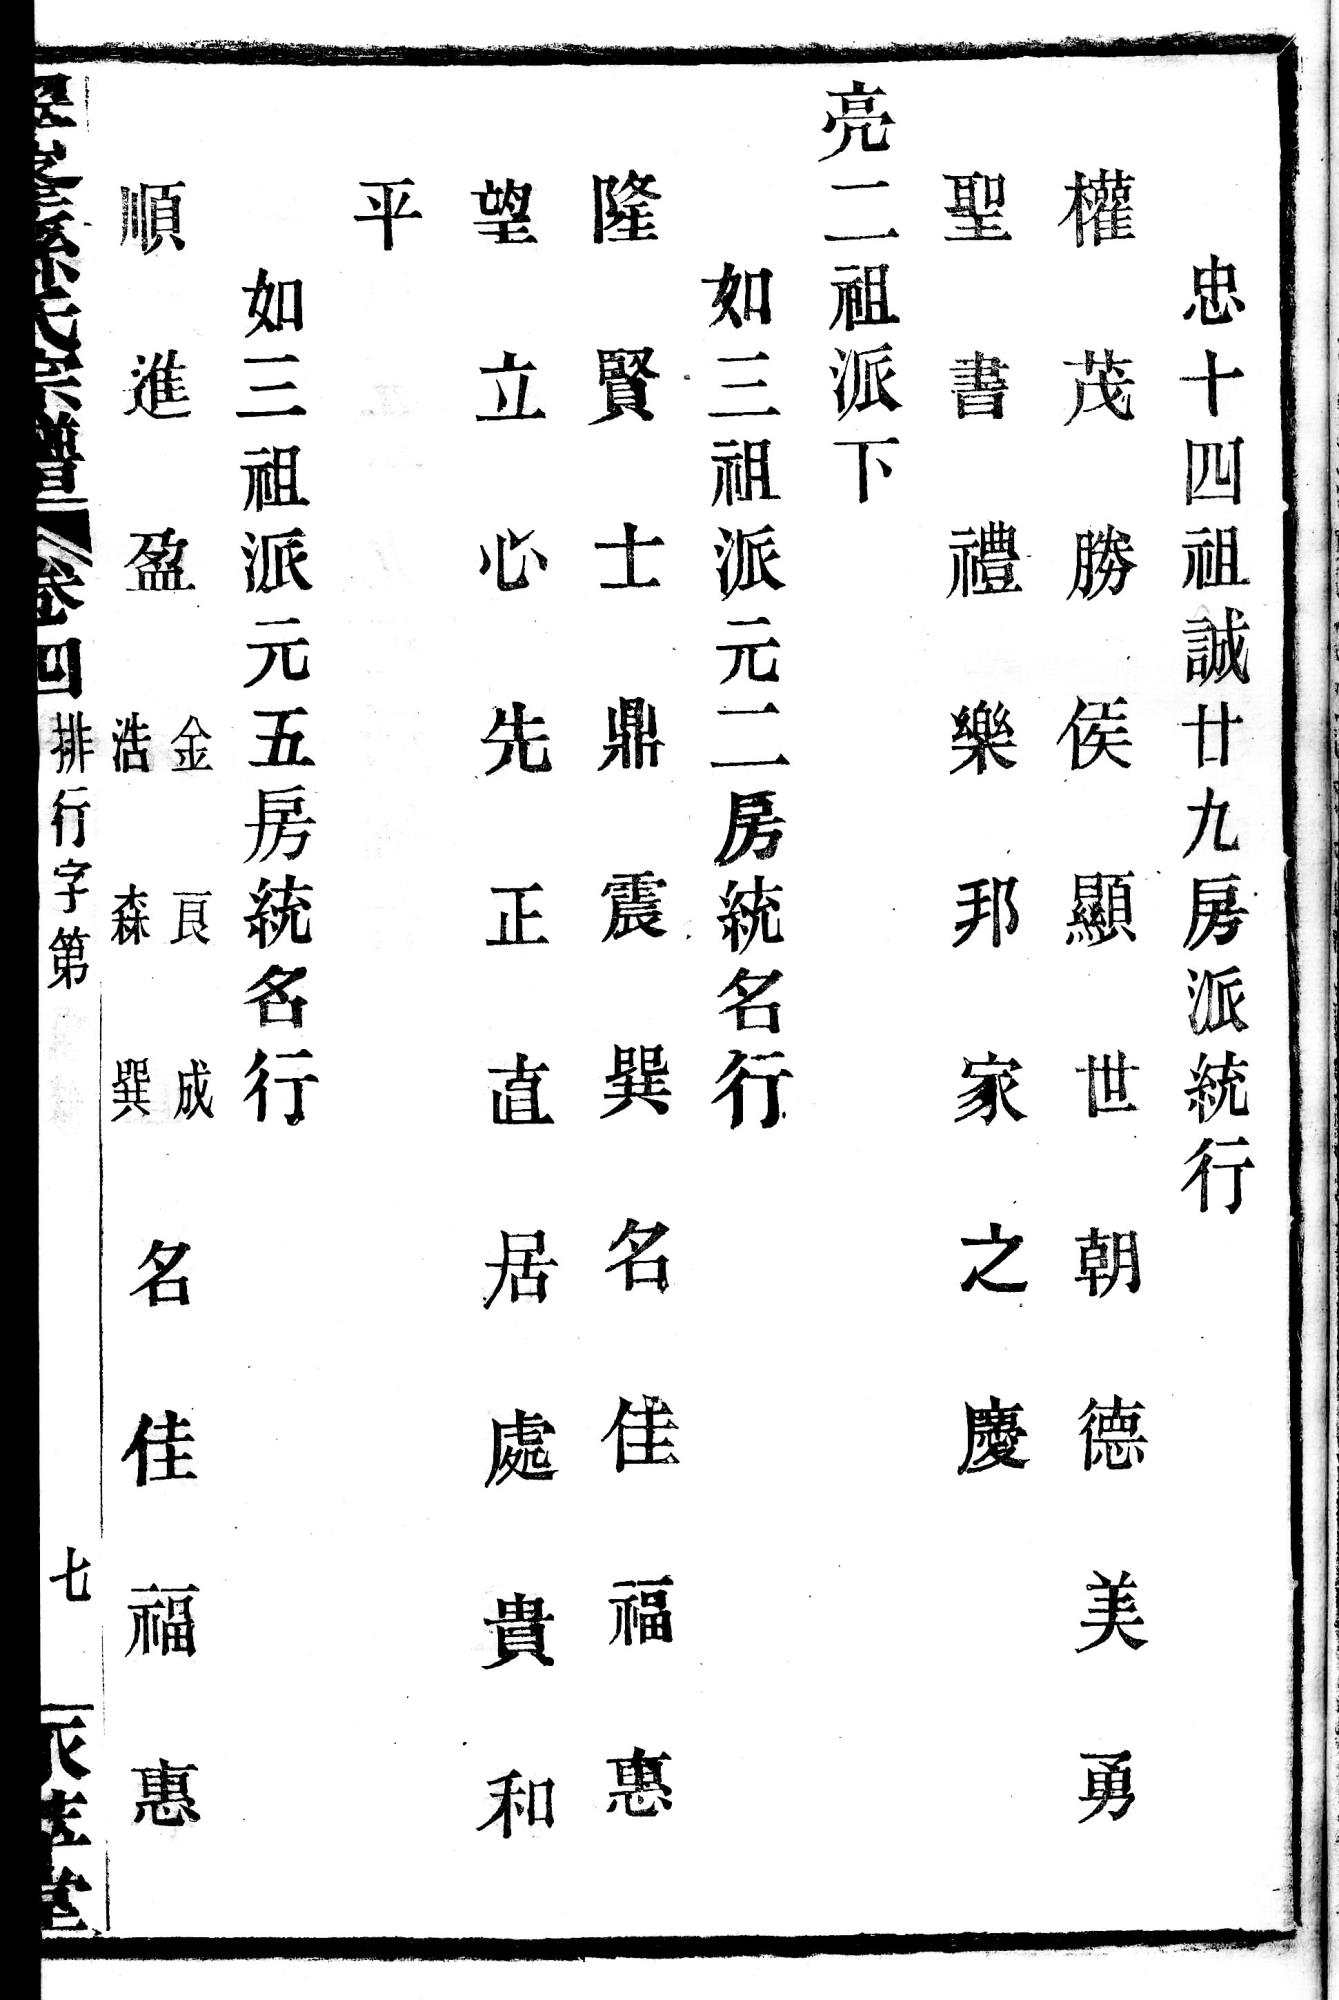 忠十四祖誠廿九房派統行
權茂勝侯顯世朝德美勇
聖書禮樂邦家之慶
亮二祖派下
如三祖派元二房統名行
隆賢士鼎震巽名佳福惠
望立心先正直居處貴和
平
如三祖派元五房統名行
順進盈
金良成
浩森巽
名佳福惠
孫氏宗譜
卷四
排行字第
七
堂